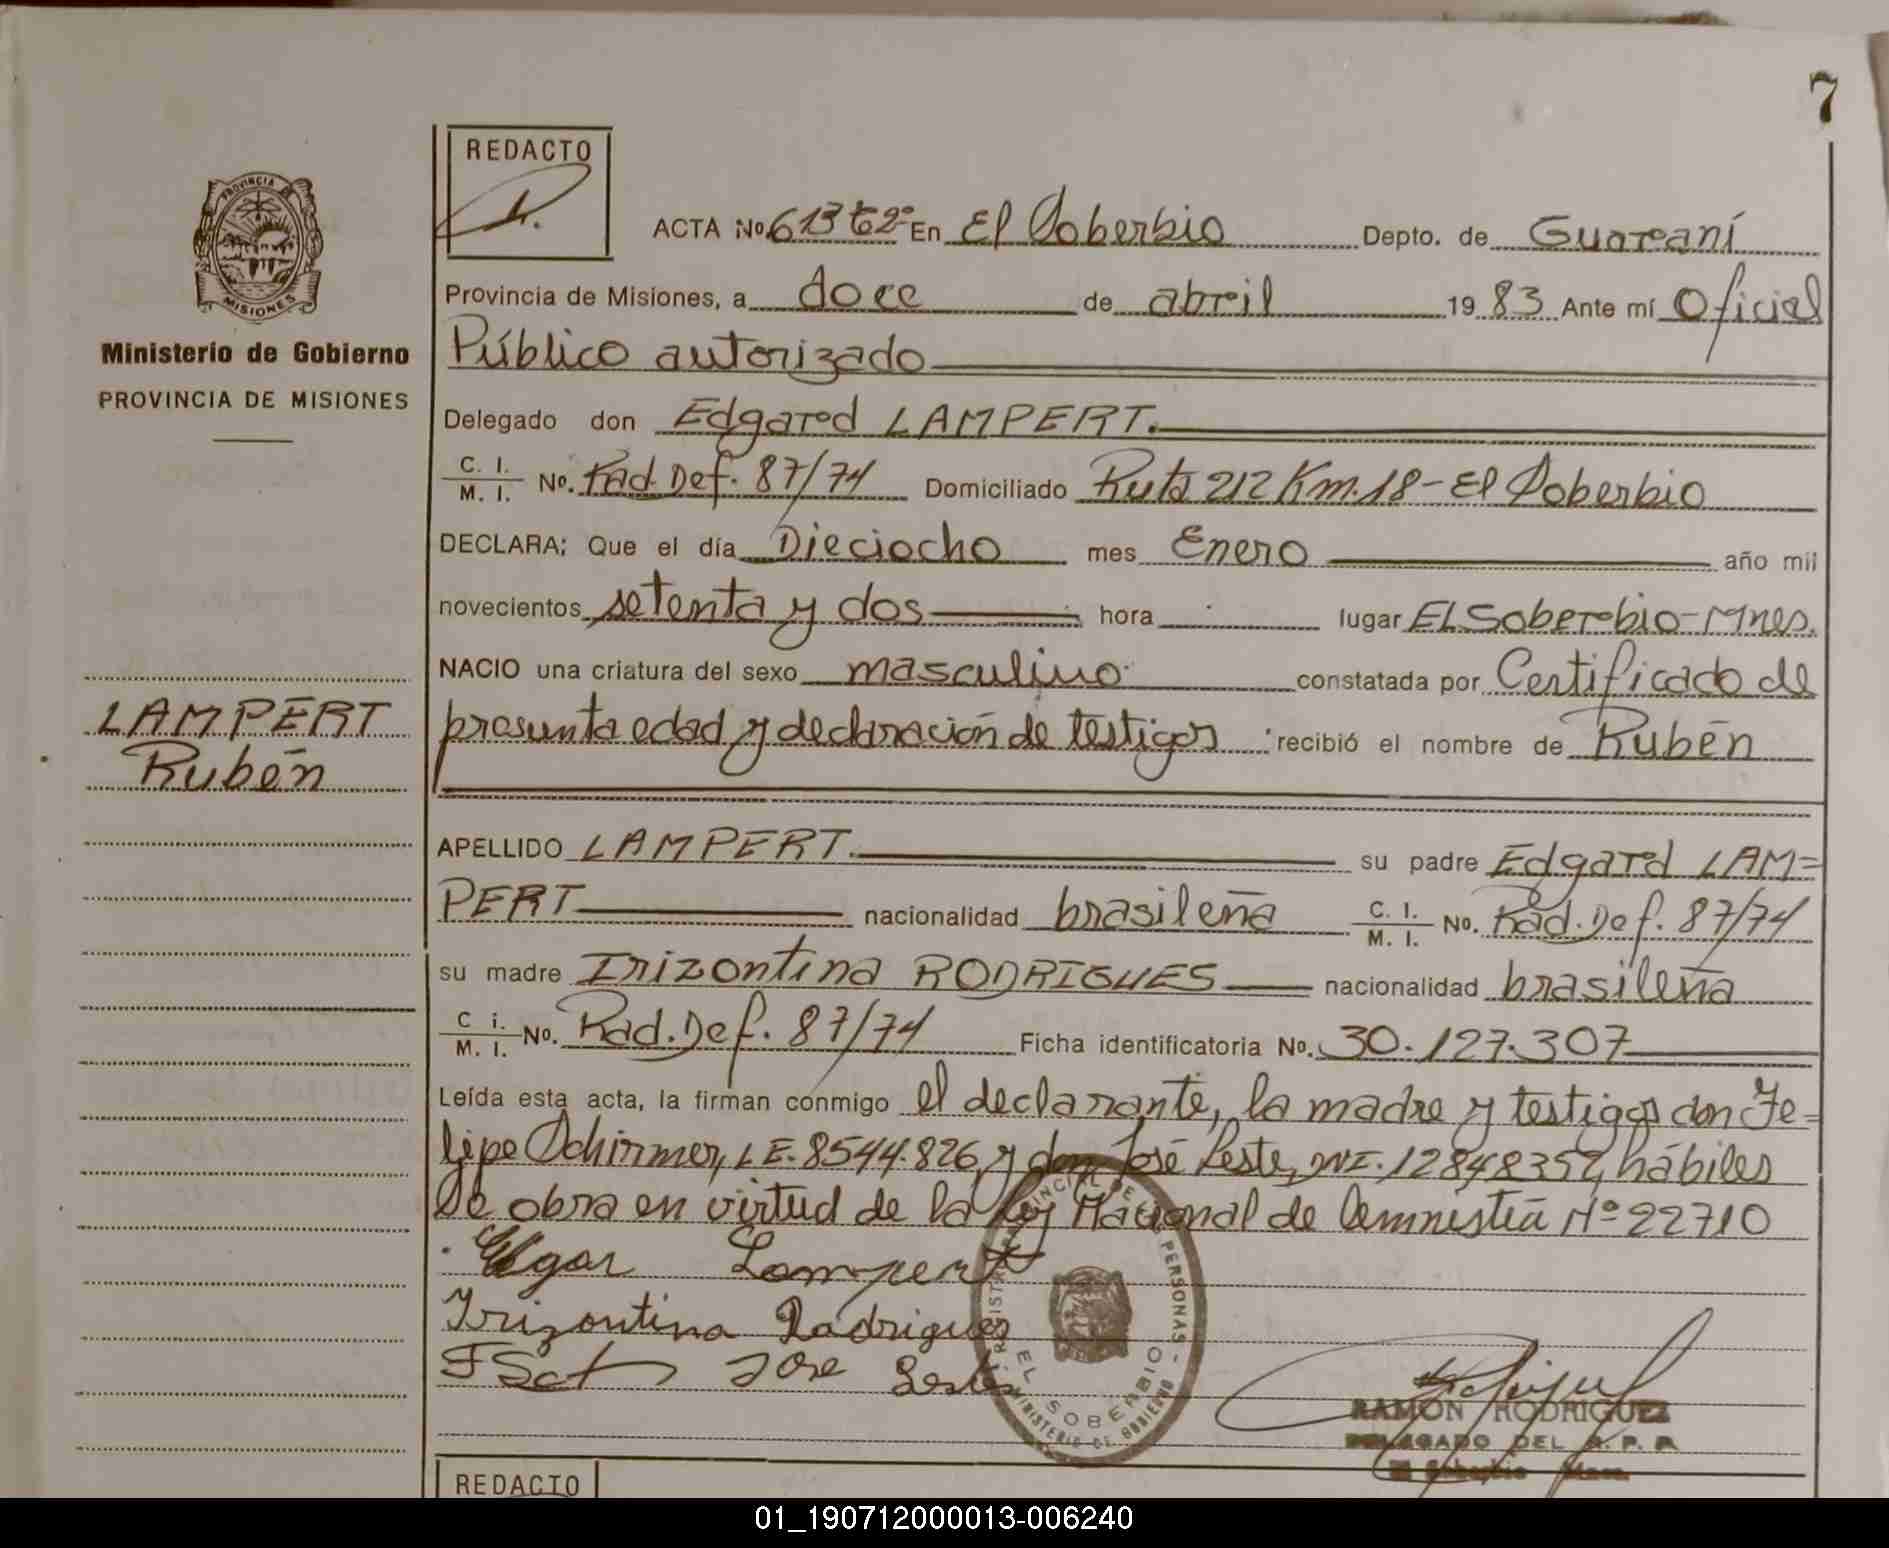 7
REDACTO
ACTA No. 613 tº2º En El Soberbio Depto. de Guaraní
Provincia de Misiones, a doce de abril 1983 Ante mí Oficial
Público autorizado
Delegado don Edgard LAMPERT.
C. I. M. I. No. Rad. Def. 87/74 Domiciliado Ruta 212 Km. 18 - El Soberbio
DECLARA: Que el día Dieciocho mes Enero año mil
novecientos setenta y dos hora lugar El Soberbio - Mnes.
NACIO una criatura del sexo masculino constatada por Certificado de
presunta edad y declaración de testigos recibió el nombre de Rubén
APELLIDO LAMPERT. su padre Edgard LAM=
PERT nacionalidad brasileña C. I. M. I. No. Rad. Def. 87/74
su madre Irizontina RODRIGUES nacionalidad brasileña
C i. M. I. No. Rad. Def. 87/74 Ficha identificatoria No. 30.127.307
Leída esta acta, la firman conmigo el declarante, la madre y testigos don Fe=
lipe Schirmer, L E. 8544.826, y don José Leste, DNI. 12848352, hábiles
Se obra en virtud de la Ley Nacional de Amnistía Nº 22710
Edgar Lampert
Irizontina Rodrigues
Jose
RAMON RODRIGUEZ
DELEGADO DEL R. P. P.
El Soberbio
PROVINCIA DE
MISIONES
Ministerio de Gobierno
PROVINCIA DE MISIONES
LAMPERT
Rubén
PROVINCIAL DE LAS PERSONAS - MINISTERIO DE GOBIERNO
EL SOBERBIO
REDACTO
01_190712000013-006240